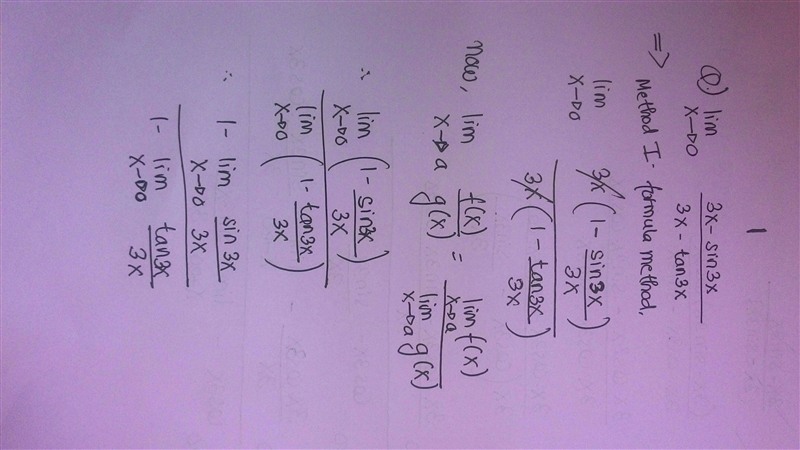 1
Q.) lim x→0 3x - sin3x / 3x - tan3x
⇒ Method I - formula method,
lim x→0 3x (1 - sin3x / 3x) / 3x (1 - tan3x / 3x)
Now, lim x→a f(x) / g(x) = lim x→a f(x) / lim x→a g(x)
∴ lim x→0 (1 - sin3x / 3x) / lim x→0 (1 - tan3x / 3x)
∴ 1 - lim x→0 sin3x / 3x / 1 - lim x→0 tan3x / 3x